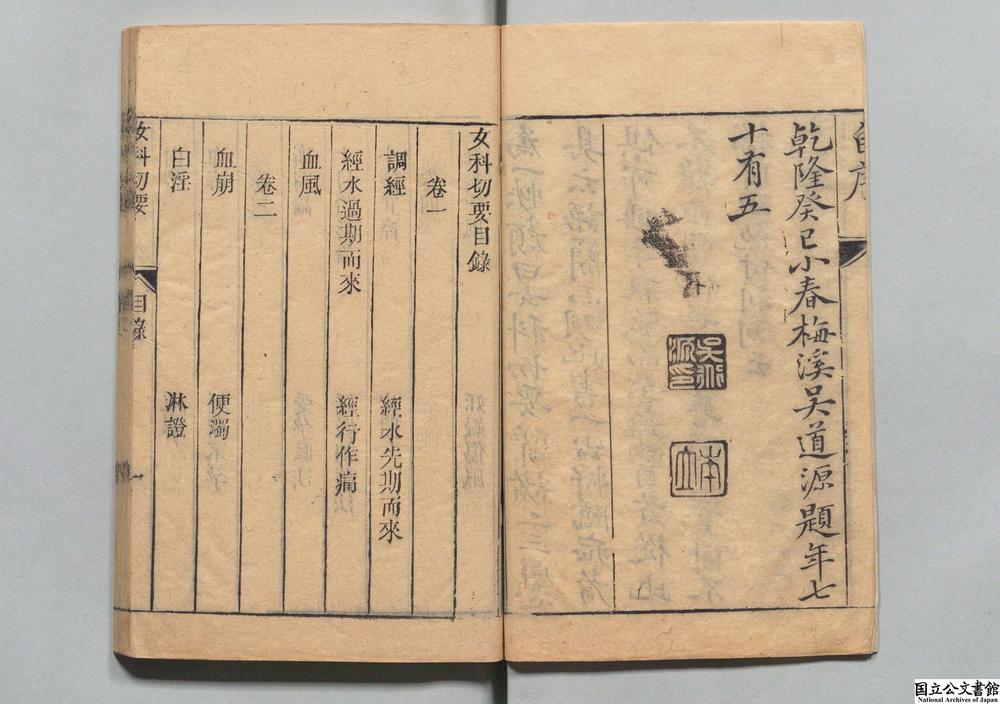 自序
乾隆癸巳小春梅溪吴道源題年七
十有五
女科切要目錄
卷一
調經
經水先期而來
經水過期而來
經行作痛
血風
卷二
血崩
便濁
白淫
淋證
女科切要
目錄
一
国立公文書館
National Archives of Japan